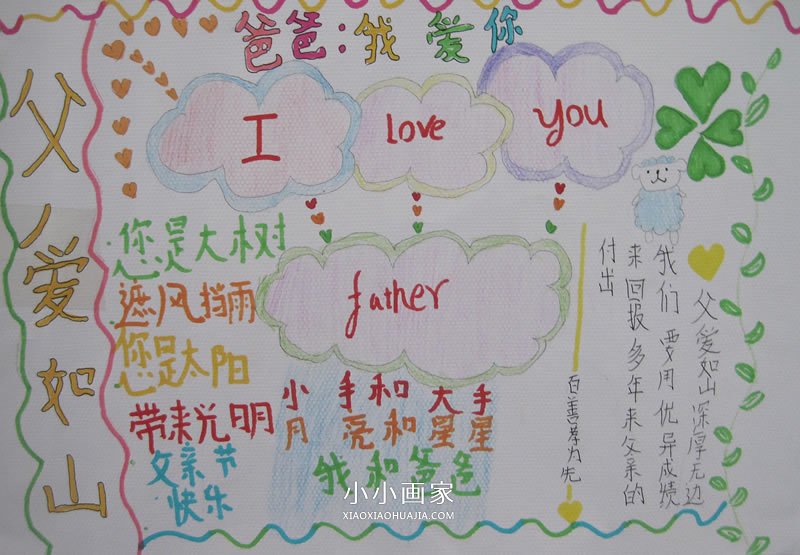 爸爸：我爱你
父爱如山
I love you
father
您是大树
遮风挡雨
您是太阳
带来光明
父亲节
快乐
小手和大手
月亮和星星
我和爸爸
百善孝为先
父爱如山深厚无边
我们要用优异成绩
来回报多年来父亲的
付出
小小画家
XIAOXIAOHUAJIA.COM